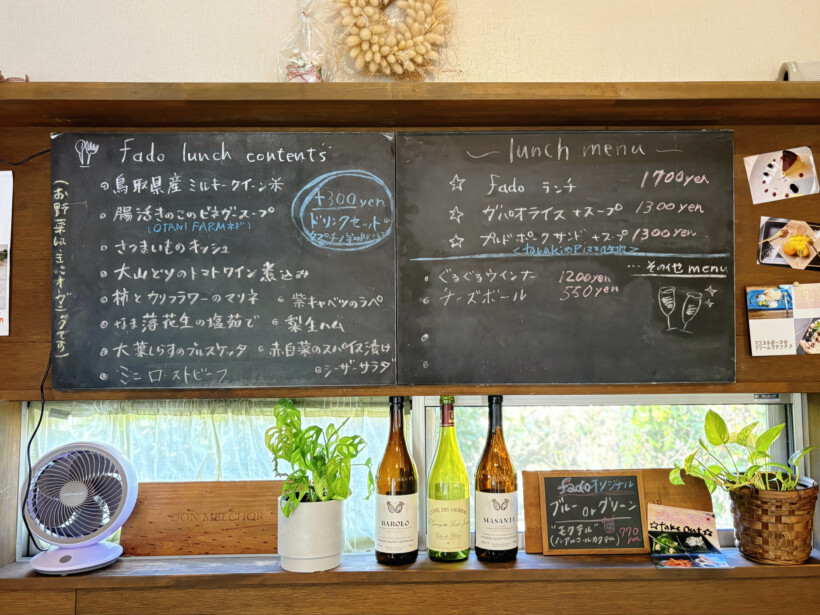 fado lunch contents
(お野菜は主にオーガニックです)
鳥取県産 ミルキークイーン米
腸活きのこのビネガースープ
(OTANI FARMネギ)
さつまいものキッシュ
大山どりのトマトワイン煮込み
柿とカリフラワーのマリネ
紫キャベツのラペ
なま落花生の塩茹で
梨生ハム
大葉しらすのブルスケッタ
赤白菜のスパイス漬け
ミニローストビーフ
シーザーサラダ
+300yen
ドリンクセット
lunch menu
☆ fado ランチ 1700yen
☆ ガパオライス +スープ 1300yen
☆ プルドポークサンド +スープ 1300yen
…その他 menu
ぐるぐるウインナー 1200yen
チーズボール 550yen
DON MELCHOR
BAROLO
MASANTI
fadoオリジナル
ブルー or グリーン
"モクテル"
(ノンアルコールカクテル)
770yen
☆take out☆